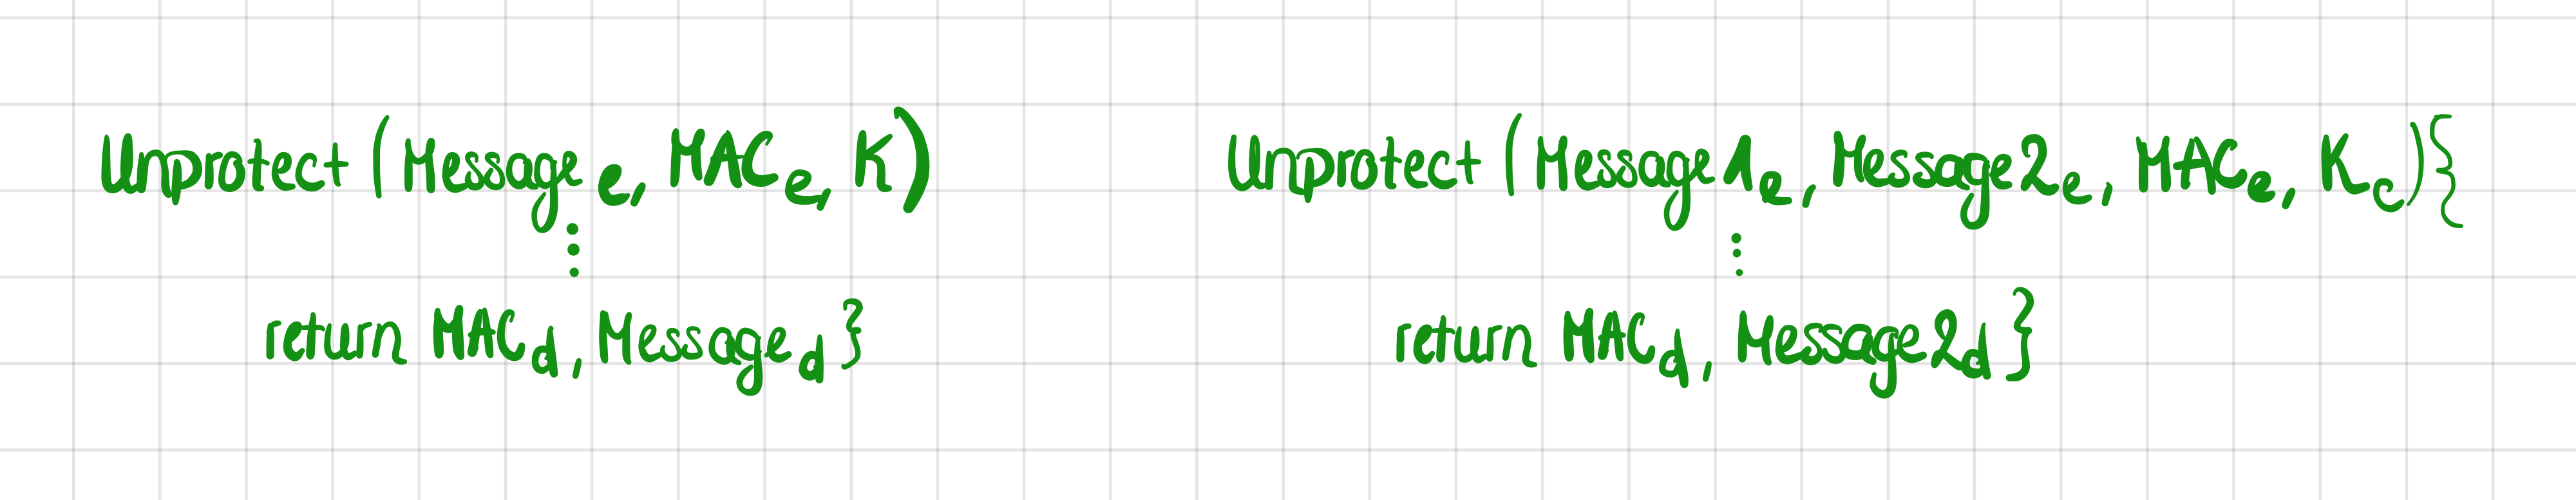 Unprotect (Message e, MAC e, K)
⋮
return MAC d, Message d }
Unprotect (Message1 e, Message2 e, MAC e, K c) {
⋮
return MAC d, Message2 d }